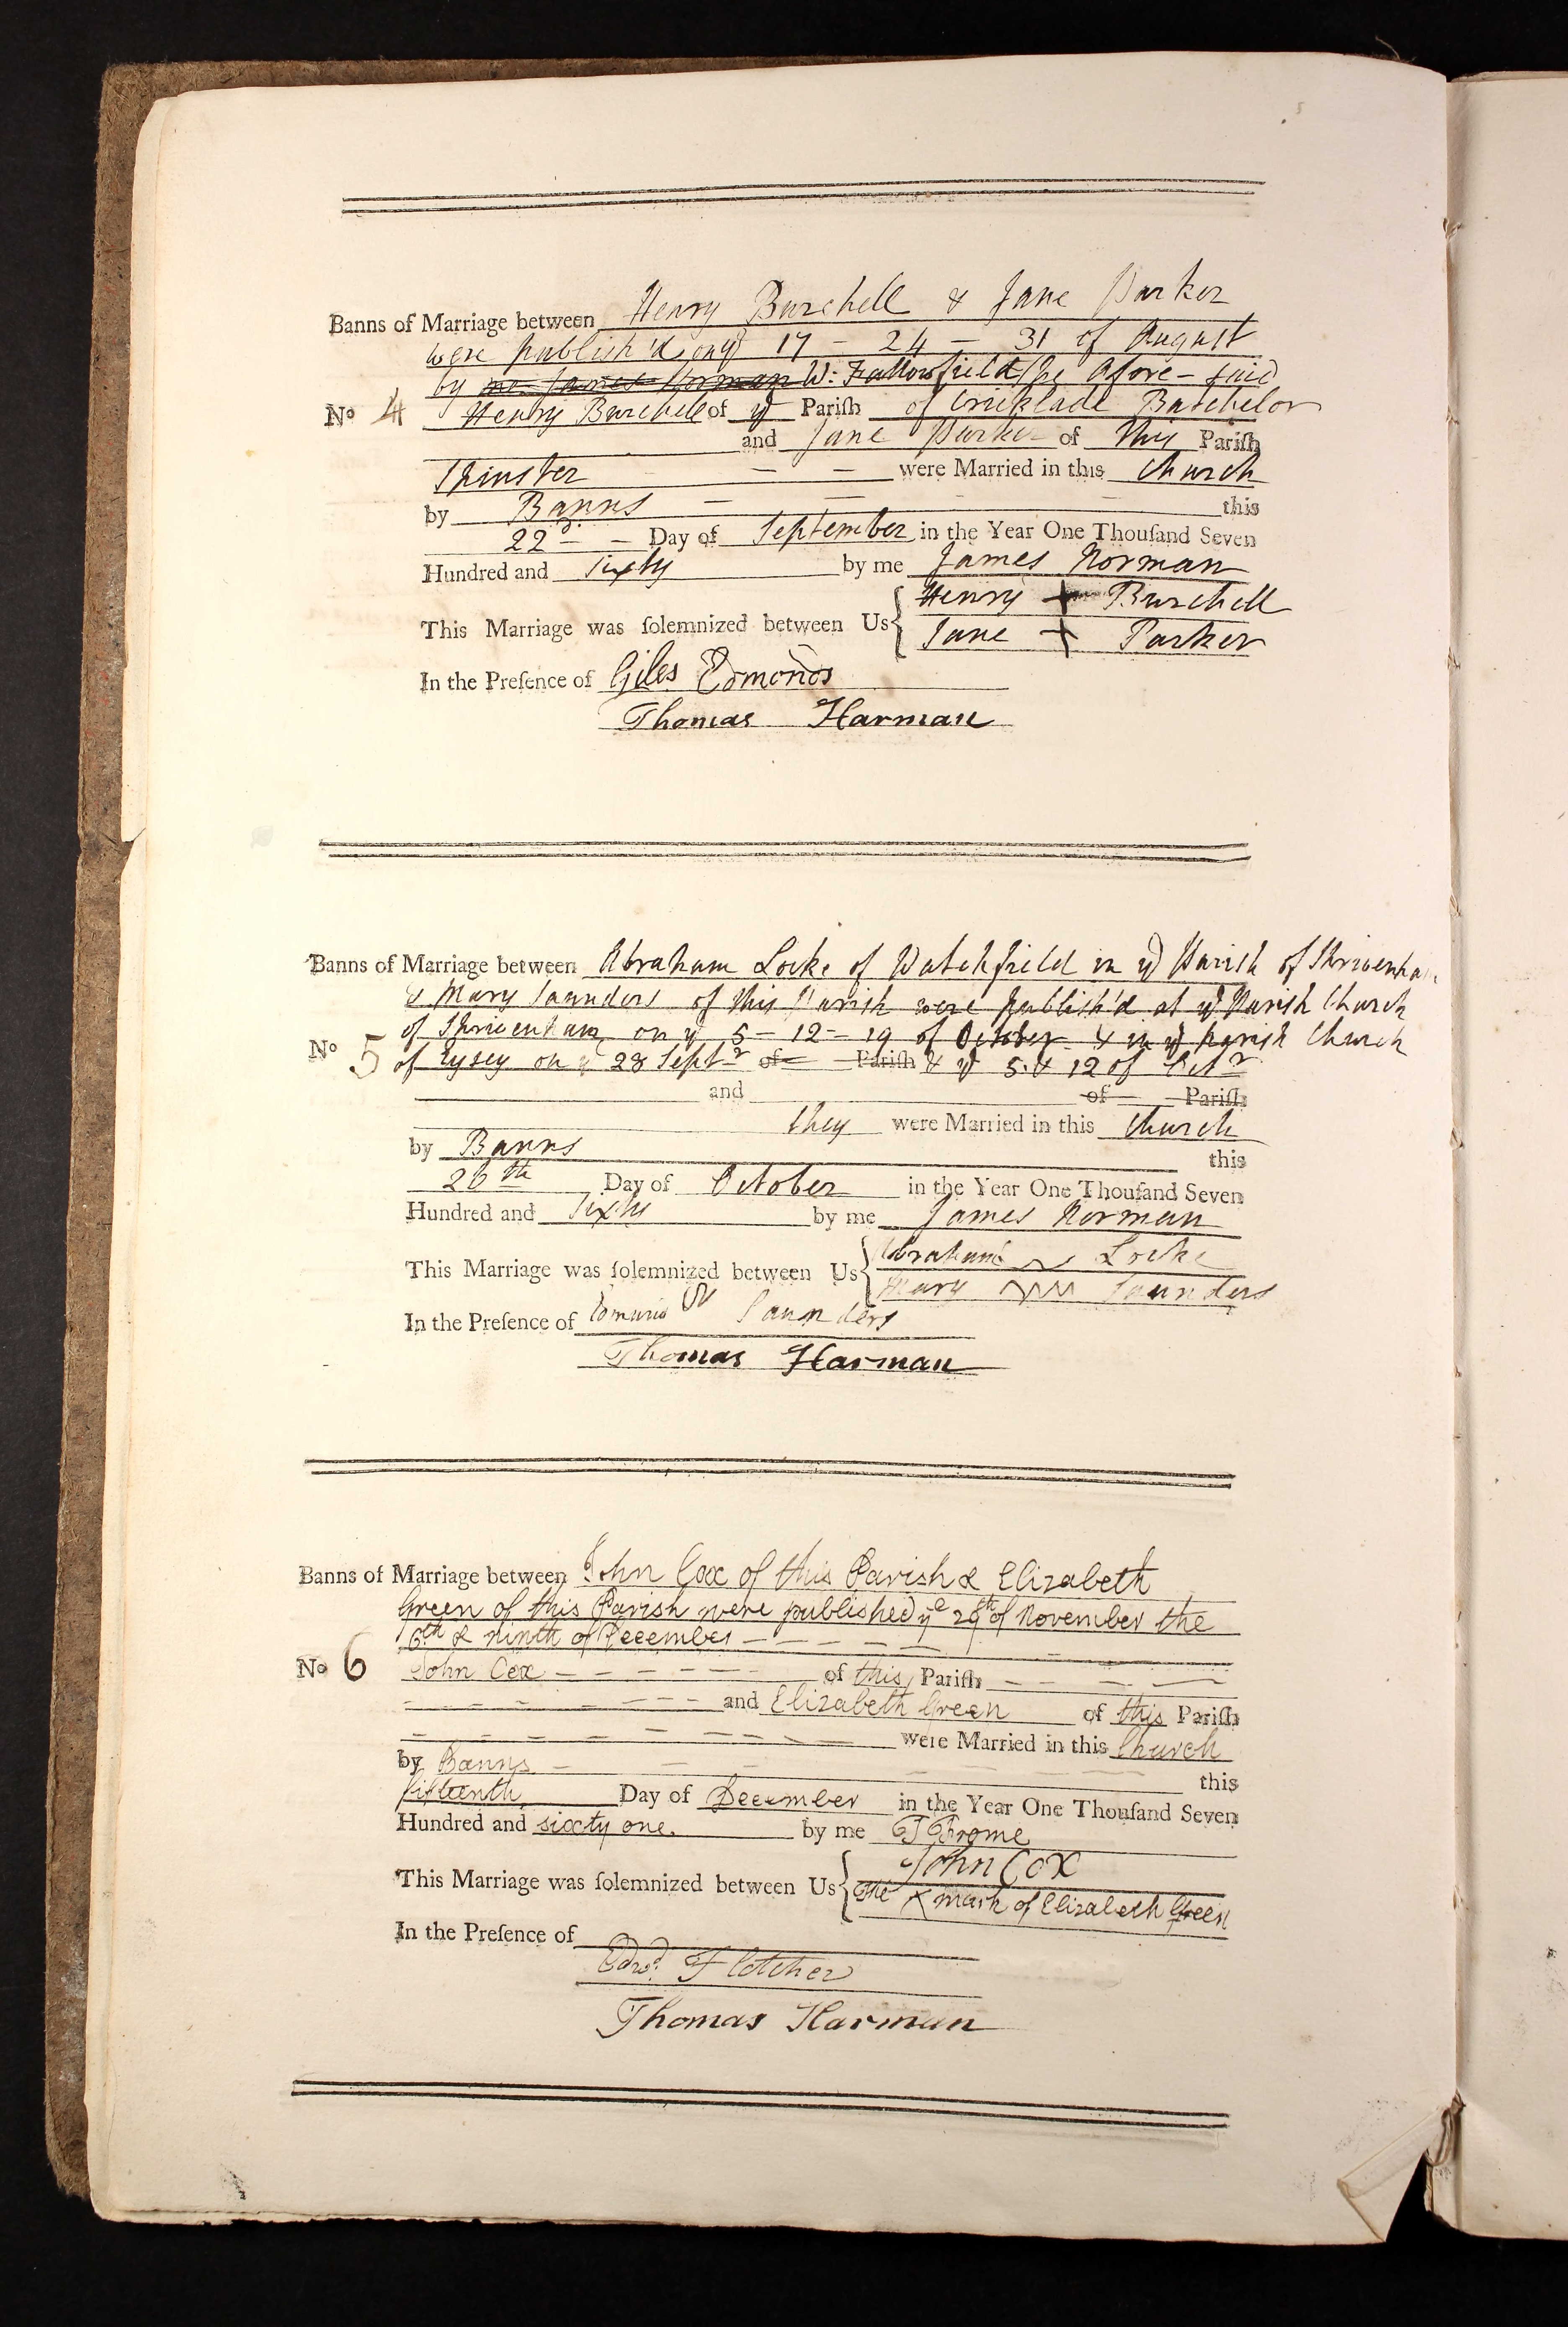 Banns of Marriage between Henry Burchell & Jane Parker
were publish'd on ye 17 - 24 - 31 of August
by me James Norman W: Fallowfield the Afore-said
No 4 Henry Burchell of ye Parish of Cricklade Batchelor
and Jane Parker of this Parish
Spinster - - were Married in this Church
by Banns - - - - this
22d - - Day of September in the Year One Thouſand Seven
Hundred and Sixty by me James Norman
This Marriage was ſolemnized between Us { Henry + Burchell
Jane + Parker
In the Preſence of Giles Edmonds
Thomas Harman
Banns of Marriage between Abraham Locke of Watchfield in ye Parish of Shrivenham
& Mary Saunders of this Parish were publish'd at ye Parish Church
of Shrivenham on ye 5 - 12 - 19 of October & in ye parish Church
No 5 of Eysey on ye 28 Septr of Pariſh & ye 5. & 12 of Octr
and of Pariſh
they were Married in this Church
by Banns this
26th Day of October in the Year One Thouſand Seven
Hundred and Sixty by me James Norman
This Marriage was ſolemnized between Us { Abraham Locke
Mary Saunders
In the Preſence of Saunders
Thomas Harman
Banns of Marriage between John Cox of this Parish & Elizabeth
Green of this Parish were published ye 29th of November the
6th & ninth of December - - - - -
No 6 John Cox - - - - - - of this Pariſh - - - - -
- - - - - - - - and Elizabeth Green of this Pariſh
- - - - - - - - were Married in this Church
by Banns - - - - - - this
fifteenth Day of December in the Year One Thouſand Seven
Hundred and sixty one. by me T Frome
This Marriage was ſolemnized between Us { John Cox
The X mark of Elizabeth Green
In the Preſence of
Edwd. Fletcher
Thomas Harman